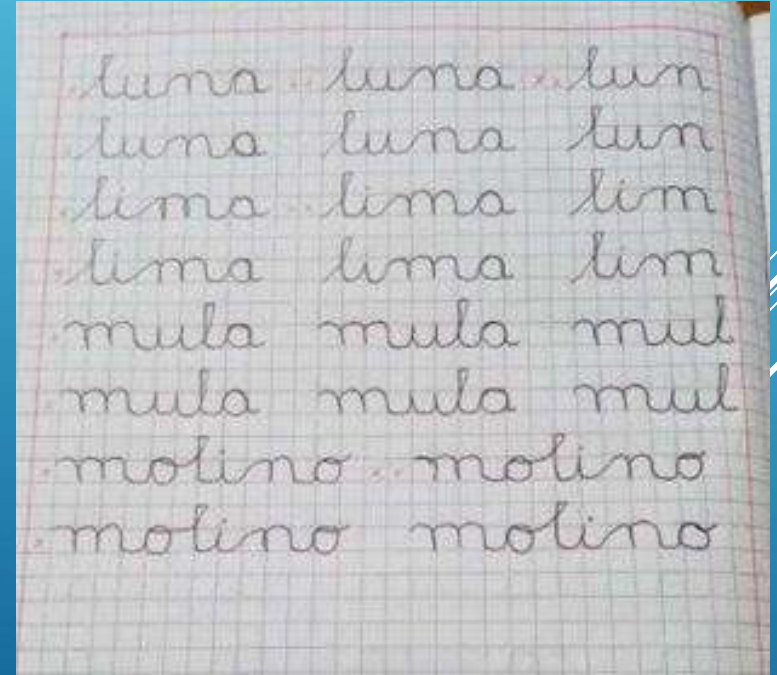 luna luna lun
luna luna lun
lima lima lim
lima lima lim
mula mula mul
mula mula mul
molino molino
molino molino